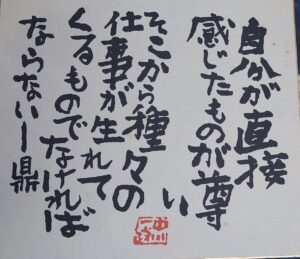 自分が直接
感じたものが尊
い
そこから種々の
仕事が生れて
くるものでなければ
ならない一鼎